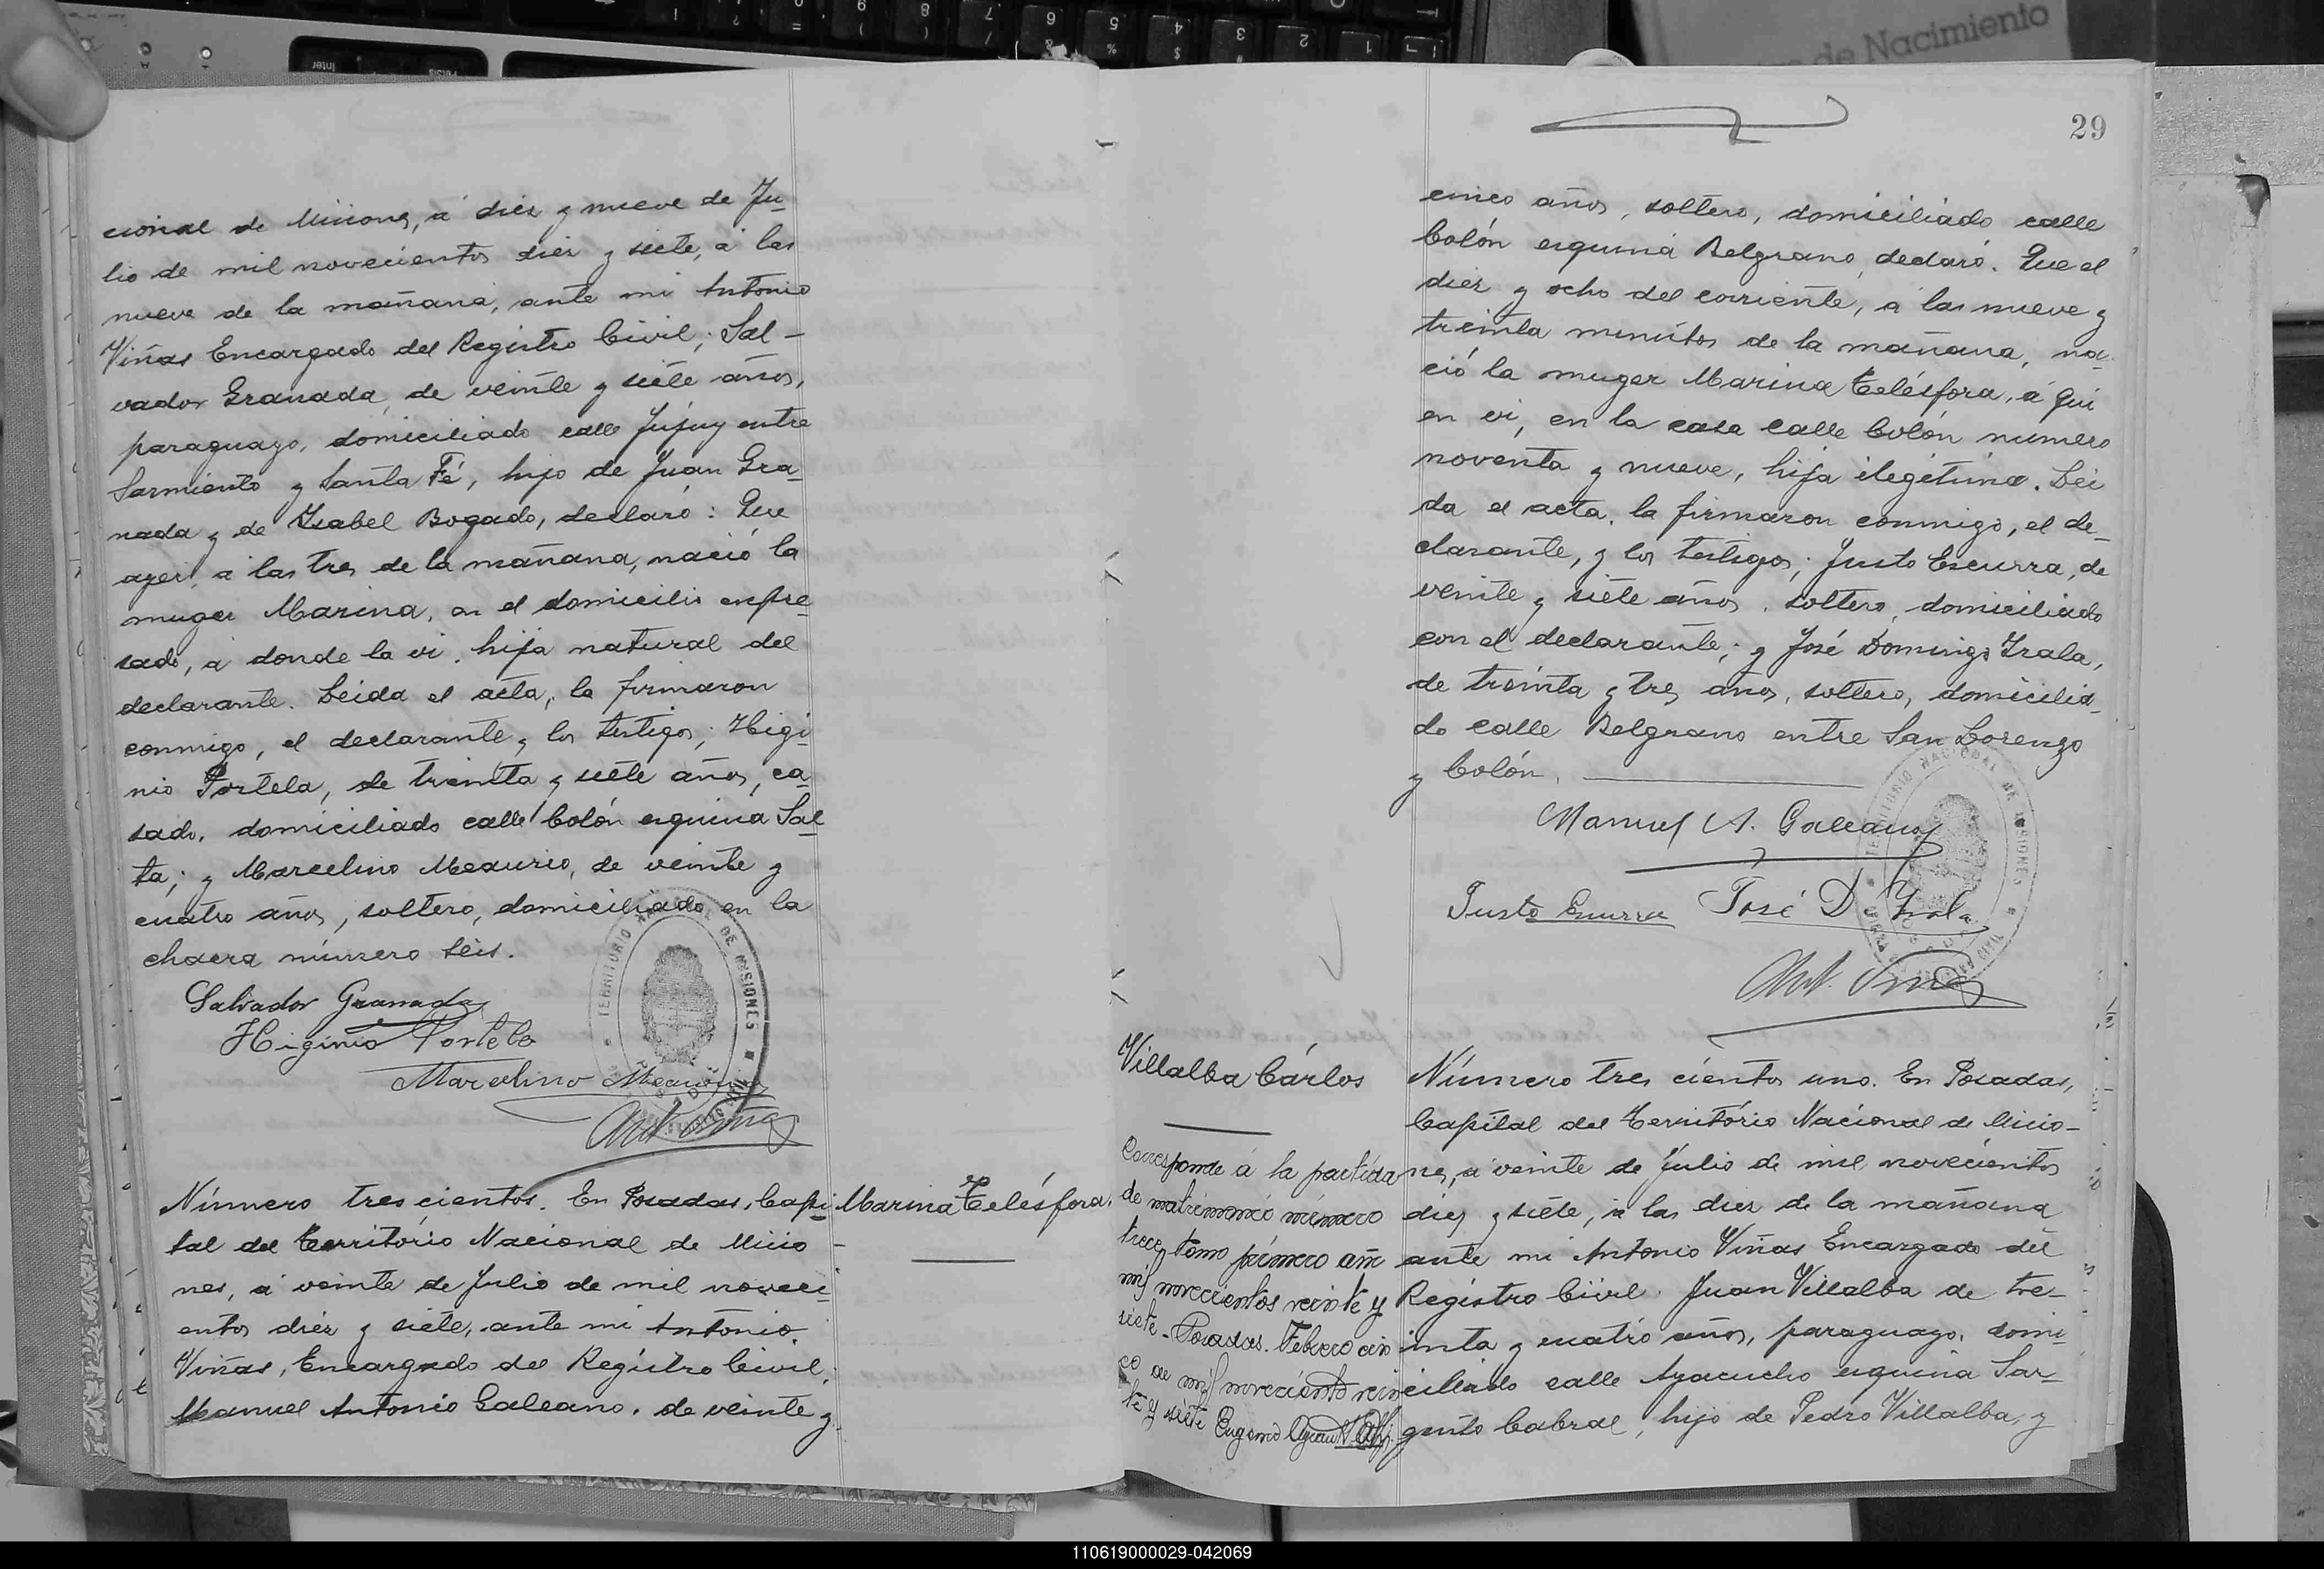 cional de Misiones, á diez y nueve de Ju-
lio de mil novecientos diez y siete, á las
nueve de la mañana, ante mi Antonio
Viñas Encargado del Registro Civil; Sal-
vador Granada, de veinte y siete años,
paraguayo, domiciliado calle Jujuy entre
Sarmiento y Santa Fé, hijo de Juan Gra-
nada y de Isabel Bogado, declaró: Que
ayer, á las tres de la mañana, nació la
muger Marina, en el domicilio expre-
sado, á donde la vi, hija natural del
declarante. Leida el acta, la firmaron
conmigo, el declarante y los testigos; Higi-
nio Portela, de treinta y siete años, ca-
sado, domiciliado calle Colón esquina Sal-
ta; y Marcelino Meaurio, de veinte y
cuatro años, soltero, domiciliado en la
chacra número seis.
Salvador Granada
Higinio Portela
Marcelino Meaurio
Ant. Viñas
TERRITORIO NACIONAL DE MISIONES
Marina Telésfora.
Número trescientos. En Posadas, Capi-
tal del Territorio Nacional de Micio-
nes, á veinte de Julio de mil noveci-
entos diez y siete, ante mi Antonio
Viñas, Encargado del Registro Civil;
Manuel Antonio Galeano, de veinte y
29
cinco años, soltero, domiciliado calle
Colón esquina Belgrano, declaró. Que el
diez y ocho del corriente, á las nueve y
treinta minutos de la mañana, na-
ció la muger Marina Telésfora, á qui
en vi, en la casa calle Colón numero
noventa y nueve, hija ilegítima. Lei
da el acta, la firmaron conmigo, el de-
clarante, y los testigos; Justo Escurra, de
veinte y siete años, soltero, domiciliado
con el declarante; y José Domingo Irala,
de treinta y tres años, soltero, domicilia-
do calle Belgrano entre San Lorenzo
y Colón.
Manuel A. Galeano
Justo Escurra José D. Irala
Ant. Viñas
TERRITORIO NACIONAL DE MISIONES
Villalba Cárlos
Corresponde á la partida
de matrimonio número
trece, tomo primero año
mil novecientos veinte y
siete. Posadas. Febrero cin
co de mil novecientos vein
te y siete Eugenio
Número tres cientos uno. En Posadas,
Capital del Territorio Nacional de Micio-
nes, á veinte de Julio de mil novecientos
diez y siete, á las diez de la mañana
ante mi Antonio Viñas Encargado del
Registro Civil. Juan Villalba de tre-
inta y cuatro años, paraguayo, domi-
ciliado calle Ayacucho esquina Sar-
gento Cabral, hijo de Pedro Villalba, y
de Nacimiento
110619000029-042069